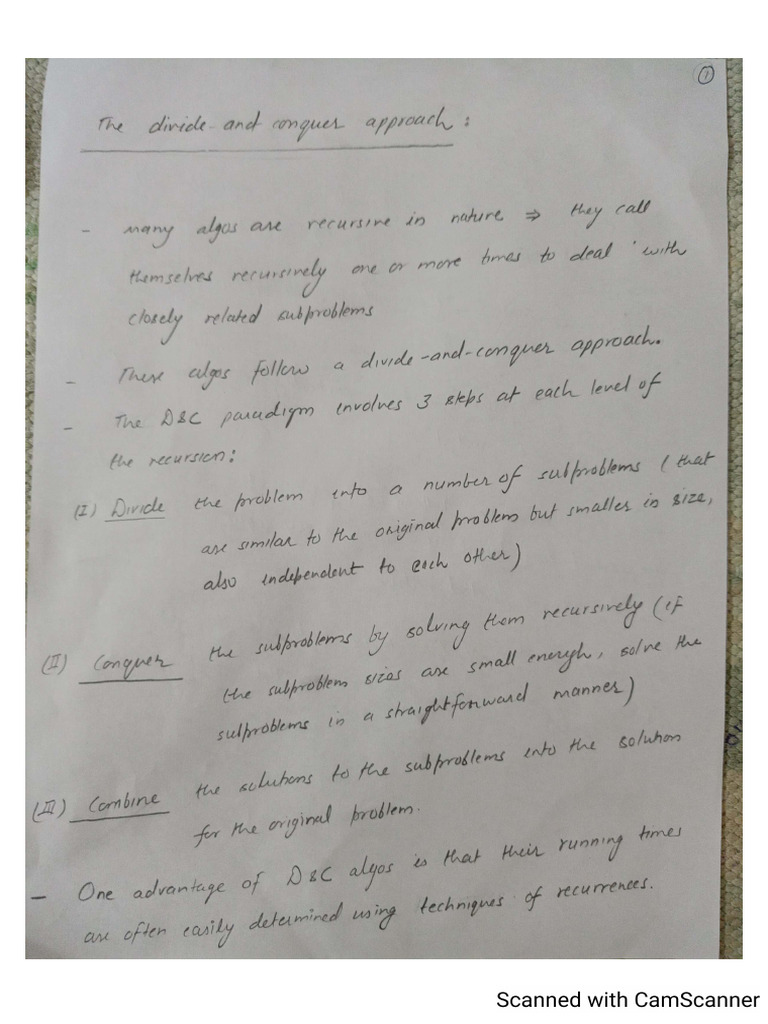 1
The divide-and conquer approach:
- Many algos are recursive in nature ⇒ they call
themselves recursively one or more times to deal with
closely related subproblems
- These algos follow a divide-and-conquer approach.
- The D&C paradigm involves 3 steps at each level of
the recursion:
(I) Divide the problem into a number of subproblems (that
are similar to the original problem but smaller in size,
also independent to each other)
(II) Conquer the subproblems by solving them recursively (if
the subproblem sizes are small enough, solve the
subproblems in a straightforward manner)
(III) Combine the solutions to the subproblems into the solution
for the original problem.
- One advantage of D&C algos is that their running times
are often easily determined using techniques of recurrences.
Scanned with CamScanner